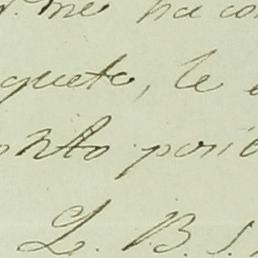 me ha co
quete, le
onto posi
L. B. S.